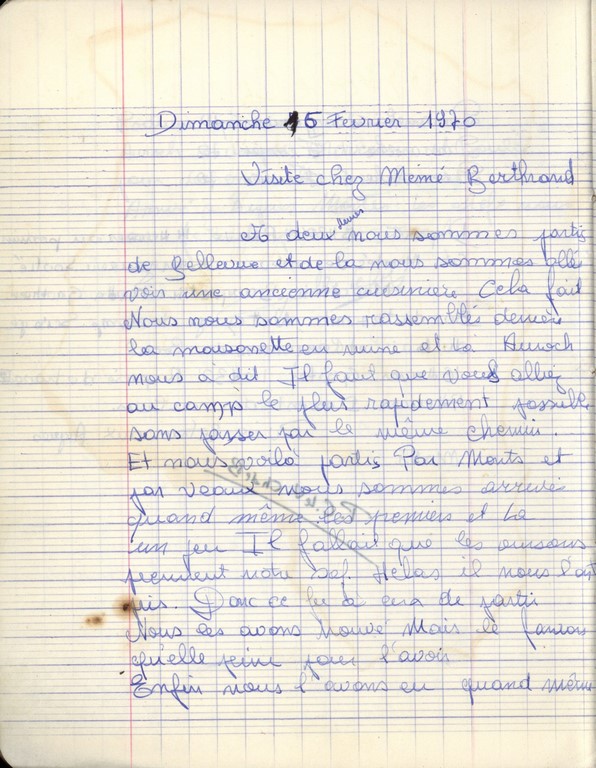 Dimanche 15 Fevrier 1970
Visite chez Mémé Berthrand
A deux heures nous sommes partis
de Bellevue et de la nous sommes allé
voir une ancienne cuisinière Cela fait
Nous nous sommes rassemblés derière
la maisonette en ruine et là Auroch
nous à dit Il faut que vous alliez
au camp le plus rapidement possible
sans passer par le même chemin.
Et nous voilà partis Par Monts et
par veaux nous sommes arrivé
quand même les premiers et La
un jeu Il fallait que les oursons
prennent notre Helas il nous l'ont
pris. Donc ce fu a eux de partir
Nous les avons trouvé Mais le fanion
qu'elle peine pour l'avoir
Enfin nous l'avons eu quand même